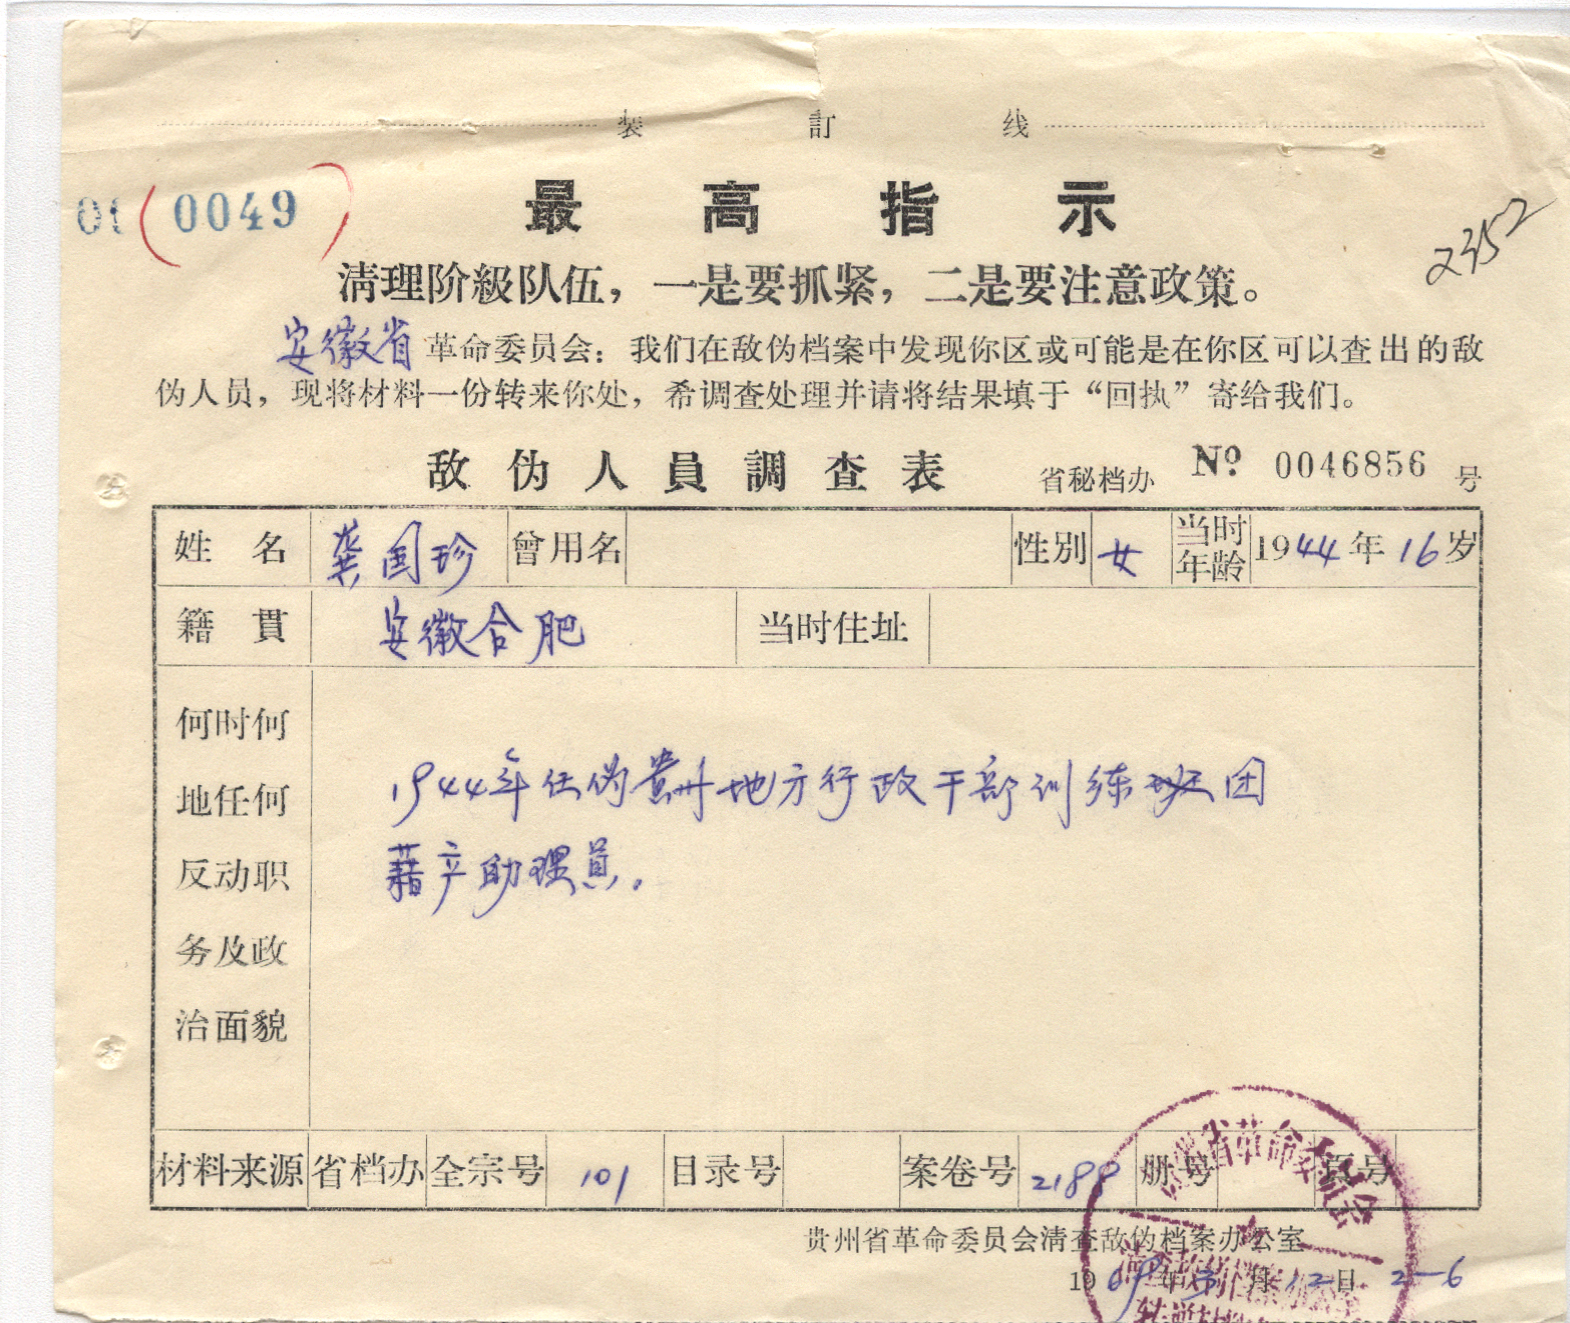 装訂线
01 (0049)
最高指示
2352
清理阶級队伍，一是要抓紧，二是要注意政策。
安徽省革命委员会：我们在敌伪档案中发现你区或可能是在你区可以查出的敌
伪人员，现将材料一份转来你处，希调查处理并请将结果填于“回执”寄给我们。
敌伪人員調查表 省秘档办 № 0046856 号
姓名 龚国珍 曾用名 性别 女 当时年龄 1944年16岁
籍貫 安徽合肥 当时住址
何时何
地任何
反动职
务及政
治面貌
1944年任伪贵州地方行政干部训练团
藉产助理員。
材料来源 省档办 全宗号 101 目录号 案卷号 2188 册号 页号
贵州省革命委员会清查敌伪档案办公室
1969年3月12日 2-6